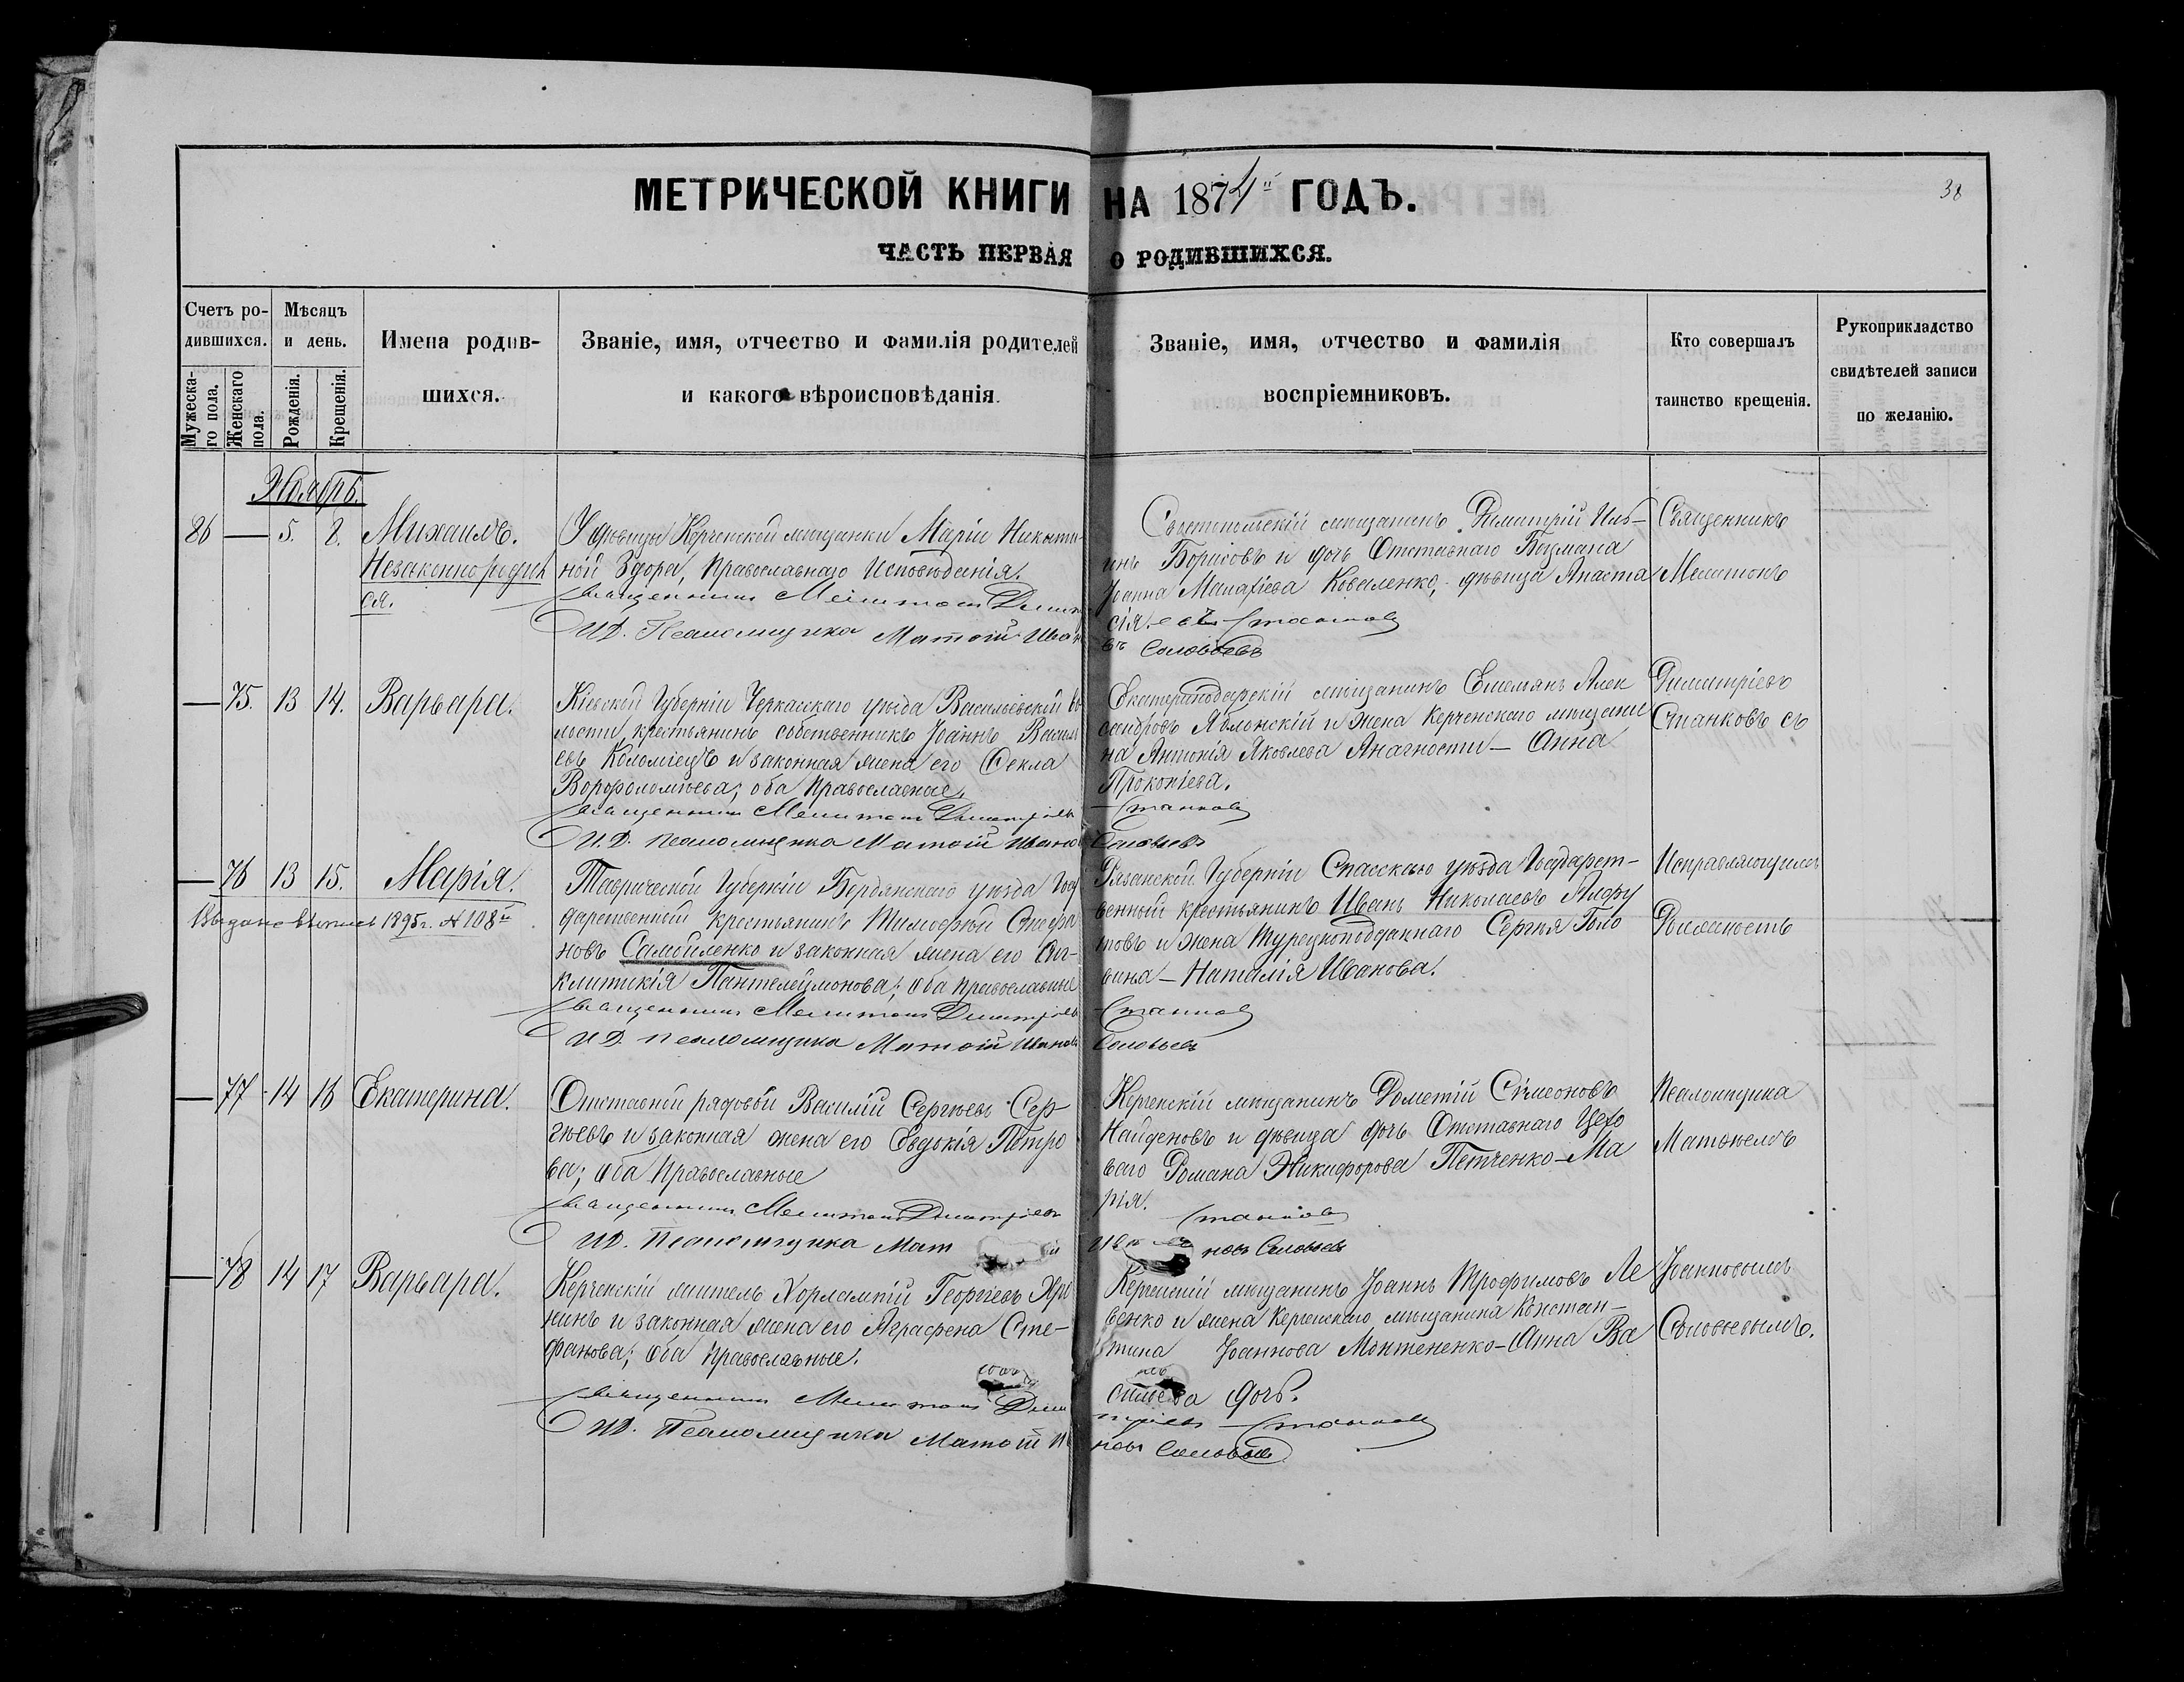 МЕТРИЧЕСКОЙ КНИГИ НА 1874й ГОДЪ.
38
ЧАСТЬ ПЕРВАЯ О РОДИВШИХСЯ.
Счетъ ро-
дившихся.
Мужеска-
го пола.
Женскаго
пола.
Мѣсяцъ
и день.
Рожденія.
Крещенія.
Имена родив-
шихся.
Званіе, имя, отчество и фамилія родителей
и какого вѣроисповѣданія.
Званіе, имя, отчество и фамилія
воспріемниковъ.
Кто совершалъ
таинство крещенія.
Рукоприкладство
свидѣтелей записи
по желанію.
Ноябрь.
86 — 5. 8. Михаилъ.
Незаконнородив
ся.
У дѣвицы Керченской мѣщанки Маріи Никити
ной Здора, Православнаго Исповѣданія.
Священникъ Мелитонъ Димит
И.Д. Псаломщика Матѳій Иван
мѣщанинъ Димитрій Иль-
инъ Борисовъ и дочь Отставнаго Боцмана
Іоанна Коваленко, дѣвица Анаста
сія. евъ Станков
въ Соловьевъ
Священникъ
Мелитонъ
— 75. 13 14. Варвара.
Кіевской Губерніи Черкаскаго уѣзда Васильевской во
лости, крестьянинъ собственникъ Іоаннъ Василь
евъ Коломіецъ и законная жена его Ѳекла
Ворѳоломѣева; оба Православные.
Священникъ Мелитонъ Димитріевъ
И.Д. псаломщика Матѳій Ивано
Екатеринодарскій мѣщанинъ Емельянъ Алек
сандровъ Яблонскій и жена Керченскаго мѣщани
на Антонія Яковлева Анагности — Анна
Прокопіева.
Станков
Соловьевъ
Димитріевъ
Станковъ съ
— 76 13 15. Марія.
Выдана выпись 1895 г. № 108й
Таврической Губерніи Бердянскаго уѣзда Госу
дарственный крестьянинъ Тимофѣй Стефа
новъ Самойленко и законная жена его
Пантелеймонова; оба православные
Священникъ Мелитонъ Димитріевъ
И.Д. псаломщика Матѳій Иванов
Рязанской Губерніи Спасскаго уѣзда Государст-
венный крестьянинъ Иванъ Николаевъ
товъ и жена Турецкоподданнаго Сергѣя Голо
вина — Наталія Иванова.
Станков
Соловьевъ
Исправляющимъ
Должность
— 77 14 16 Екатерина.
Отставной рядовой Василій Сергѣевъ Сер-
гѣевъ и законная жена его Евдокія Петро
ва; оба Православные
Священникъ Мелитонъ Димитріевъ
И.Д. Псаломщика Мат й
Керченскій мѣщанинъ Дометій Сѵмеоновъ
Найденовъ и дѣвица дочь Отставнаго Цехо
ваго Романа Никифорова Петченко — Ма
рія.
Станков
новъ Соловьевъ
Псаломщика
Матѳѣемъ
— 78 14 17 Варвара.
Керченскій житель Харлампій Георгіевъ Хри
нинъ и законная жена его Аграфена Сте-
фанова; оба Православные.
Священникъ Мелитонъ Дими
И.Д. Псаломщика Матѳій И
Керченскій мѣщанинъ Іоаннъ Трофимовъ Ле
венко и жена Керченскаго мѣщанина Констан-
тина Іоаннова Монтененко — Анна Ва
сильева дочь.
тріевъ Станков
новъ Соловьевъ
Іоанновымъ
Соловьевымъ.